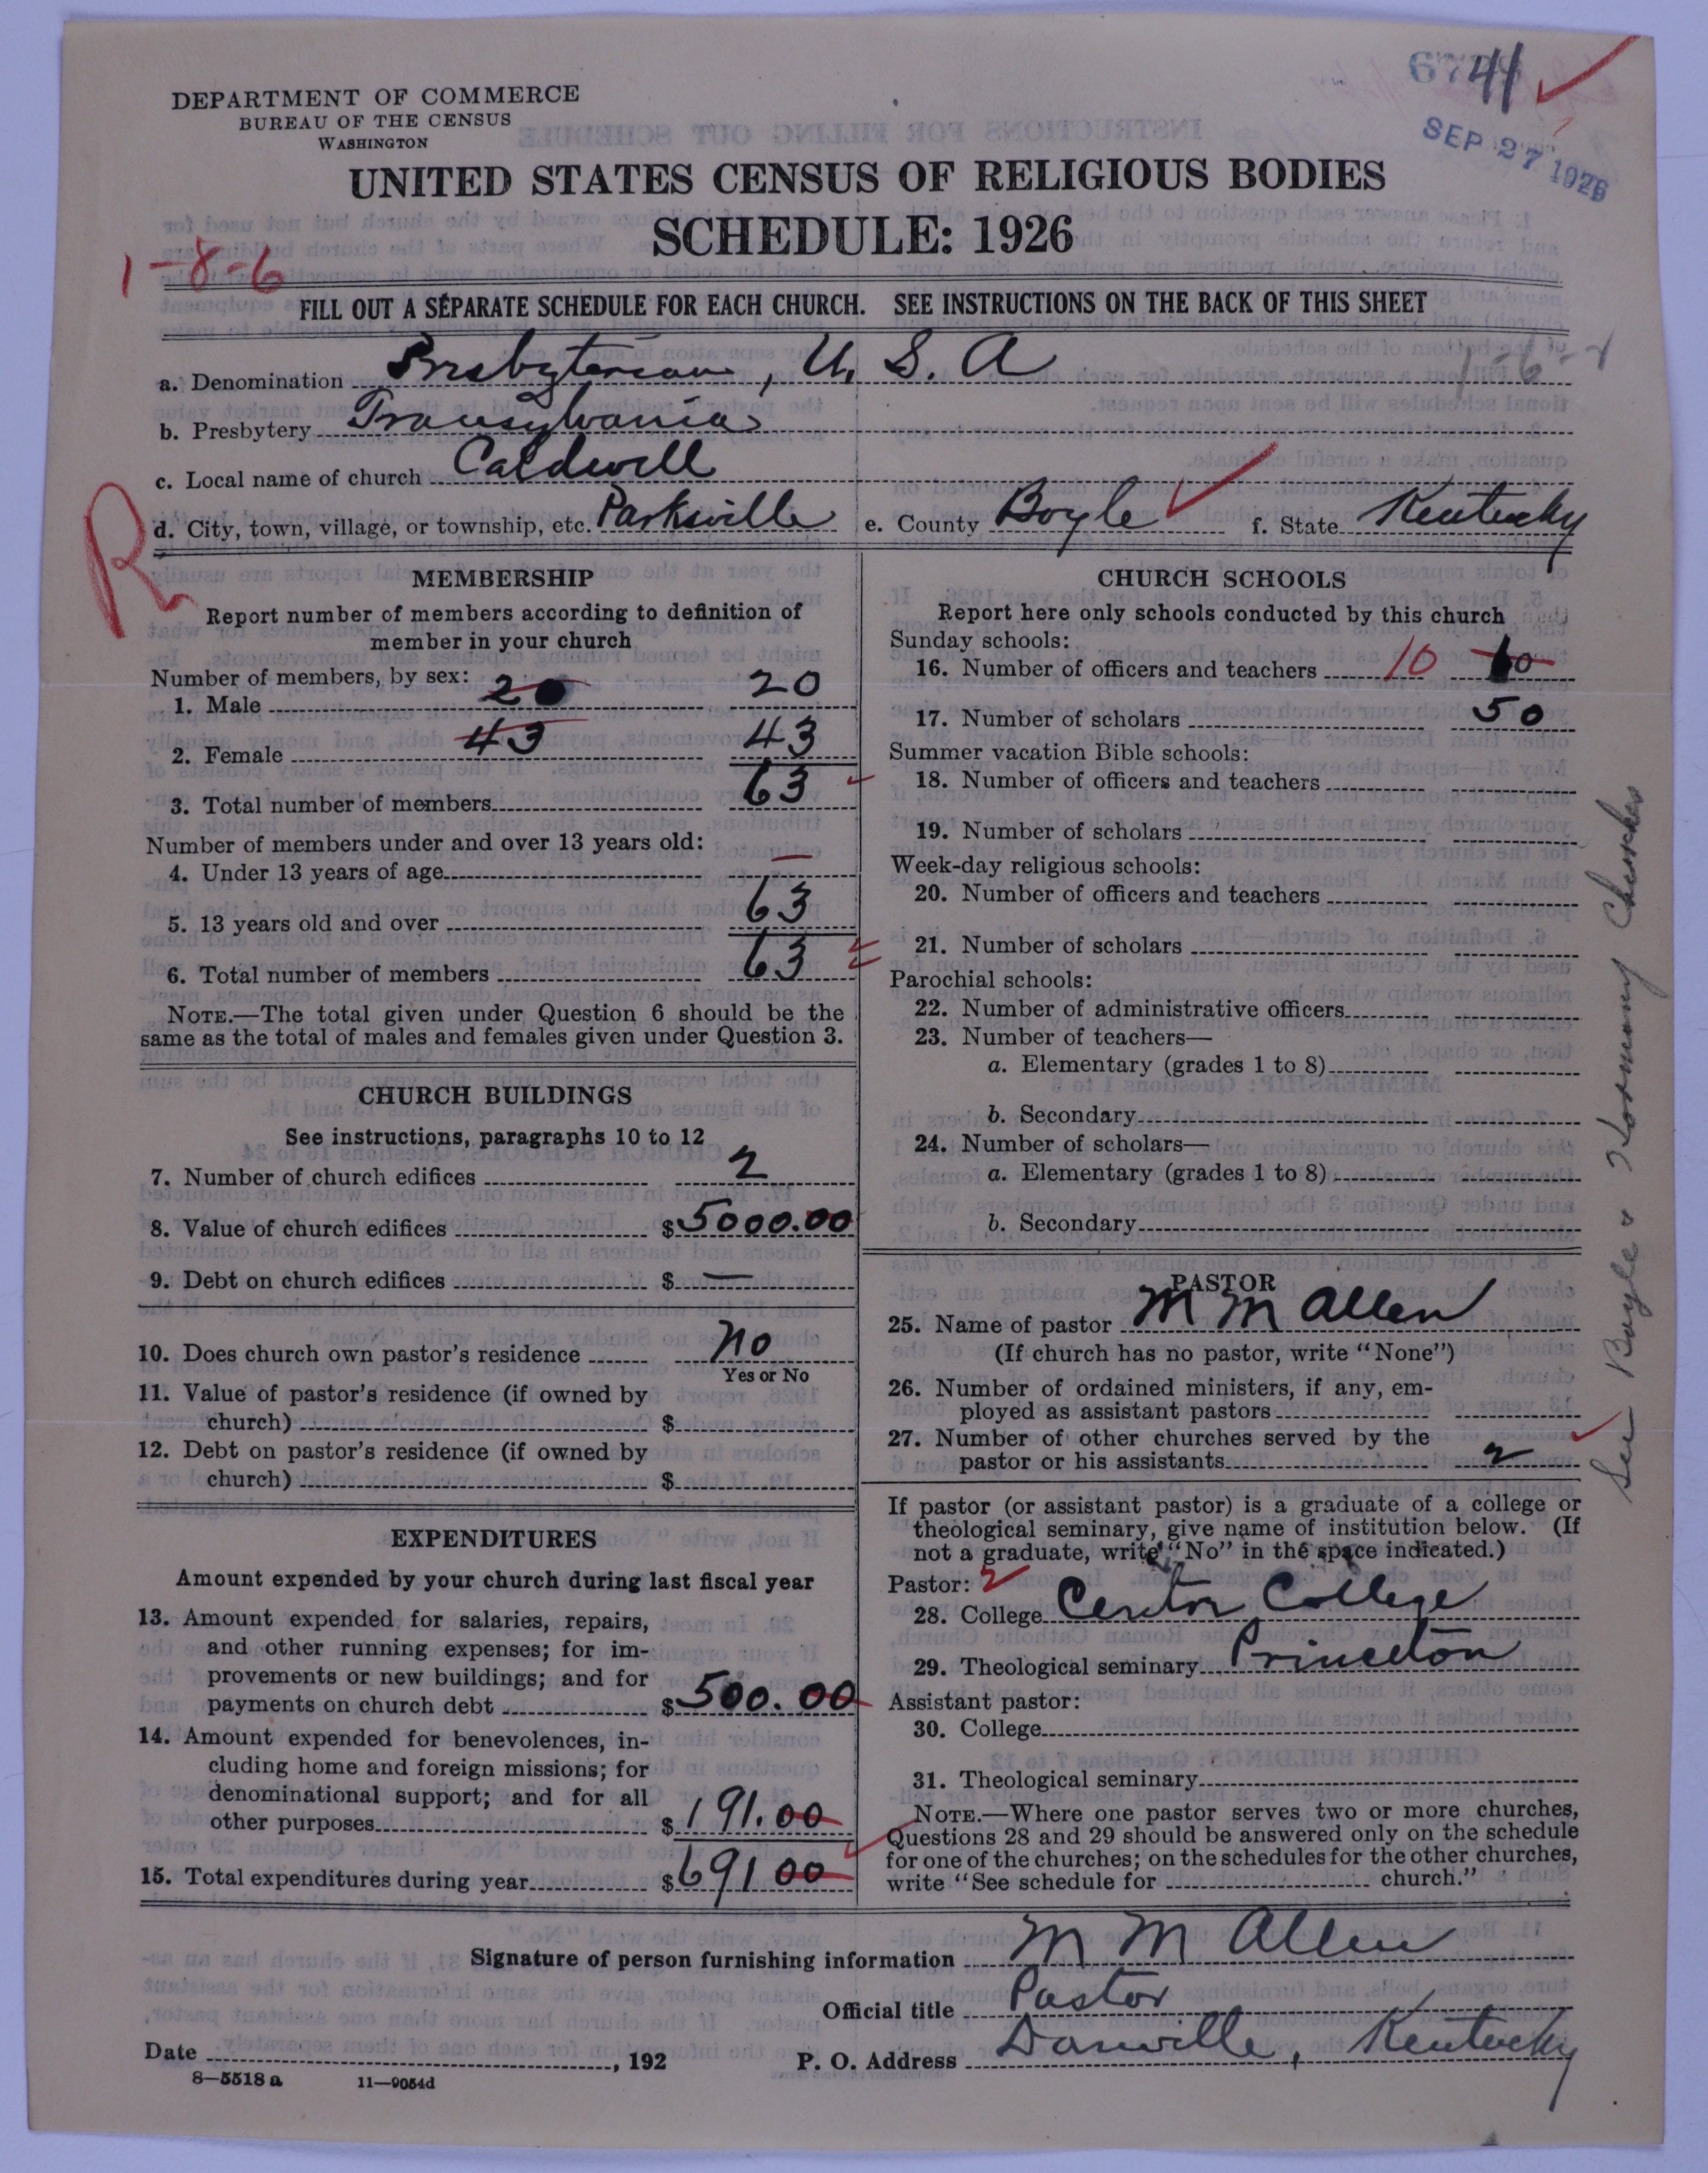 41
SEP 27 1926
DEPARTMENT OF COMMERCE
BUREAU OF THE CENSUS
WASHINGTON
UNITED STATES CENSUS OF RELIGIOUS BODIES
SCHEDULE: 1926
1-8-6
FILL OUT A SEPARATE SCHEDULE FOR EACH CHURCH. SEE INSTRUCTIONS ON THE BACK OF THIS SHEET
a. Denomination Presbyterian, U. S. A
b. Presbytery Transylvania
c. Local name of church Caldwell
R
d. City, town, village, or township, etc. Parksville e. County Boyle f. State Kentucky
MEMBERSHIP
Report number of members according to definition of
member in your church
Number of members, by sex:
1. Male 20 20
2. Female 43 43
3. Total number of members 63
Number of members under and over 13 years old:
4. Under 13 years of age —
5. 13 years old and over 63
6. Total number of members 63
NOTE.—The total given under Question 6 should be the
same as the total of males and females given under Question 3.
CHURCH BUILDINGS
See instructions, paragraphs 10 to 12
7. Number of church edifices 2
8. Value of church edifices $5000.00
9. Debt on church edifices $ —
10. Does church own pastor's residence no
Yes or No
11. Value of pastor's residence (if owned by
church) $
12. Debt on pastor's residence (if owned by
church) $
EXPENDITURES
Amount expended by your church during last fiscal year
13. Amount expended for salaries, repairs,
and other running expenses; for im-
provements or new buildings; and for
payments on church debt $500.00
14. Amount expended for benevolences, in-
cluding home and foreign missions; for
denominational support; and for all
other purposes $191.00
15. Total expenditures during year $691 00
CHURCH SCHOOLS
Report here only schools conducted by this church
Sunday schools:
16. Number of officers and teachers 10 10
17. Number of scholars 50
Summer vacation Bible schools:
18. Number of officers and teachers
19. Number of scholars
Week-day religious schools:
20. Number of officers and teachers
21. Number of scholars
Parochial schools:
22. Number of administrative officers
23. Number of teachers—
a. Elementary (grades 1 to 8)
b. Secondary
24. Number of scholars—
a. Elementary (grades 1 to 8)
b. Secondary
PASTOR
25. Name of pastor M M Allen
(If church has no pastor, write "None")
26. Number of ordained ministers, if any, em-
ployed as assistant pastors
27. Number of other churches served by the
pastor or his assistants 2
If pastor (or assistant pastor) is a graduate of a college or
theological seminary, give name of institution below. (If
not a graduate, write "No" in the space indicated.)
Pastor:
28. College Centre College
29. Theological seminary Princeton
Assistant pastor:
30. College
31. Theological seminary
NOTE.—Where one pastor serves two or more churches,
Questions 28 and 29 should be answered only on the schedule
for one of the churches; on the schedules for the other churches,
write "See schedule for church."
See Boyle & Harmony Churches
Signature of person furnishing information M M Allen
Official title Pastor
Date , 192 P. O. Address Danville, Kentucky
8—5518 a 11—9054d